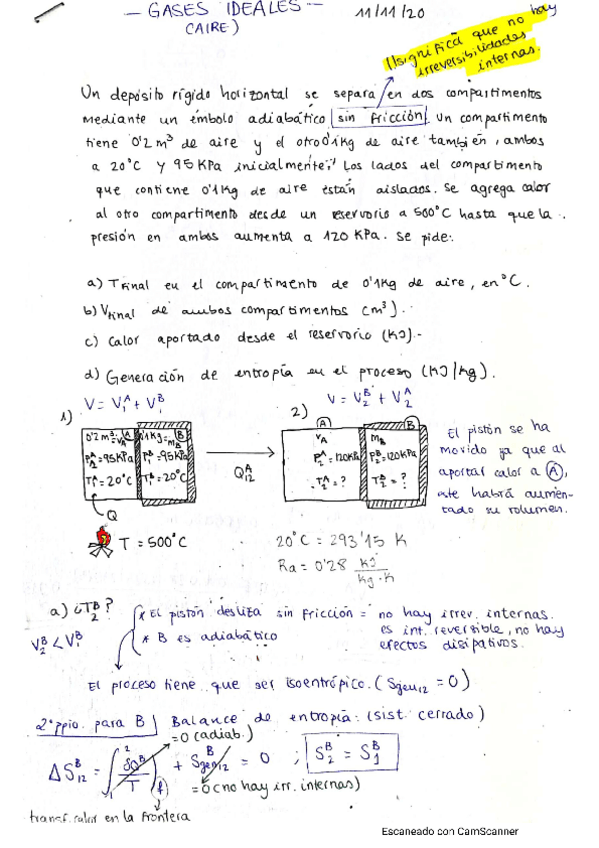 - GASES IDEALES -
(AIRE)
11/11/20
(!) significa que no hay
irreversibilidades
internas.
Un depósito rígido horizontal se separa en dos compartimentos
mediante un émbolo adiabático sin fricción. Un compartimento
tiene 0'2 m³ de aire y el otro 0'1kg de aire también, ambos
a 20°C y 95 KPa inicialmente. Los lados del compartimento
que contiene 0'1kg de aire están aislados. Se agrega calor
al otro compartimento desde un reservorio a 500°C hasta que la
presión en ambos aumenta a 120 KPa. Se pide:
a) TFinal en el compartimento de 0'1kg de aire, en °C.
b) Vfinal de ambos compartimentos (m³).
c) Calor aportado desde el reservorio (KJ).-
d) Generación de entropía en el proceso (KJ/kg).
1) V = V₁ᴬ + V₁ᴮ
2) V = V₂ᴮ + V₂ᴬ
0'2 m³ = VA A 0'1kg = mB B
P₁ᴬ = 95KPa P₁ᴮ = 95KPa
T₁ᴬ = 20°C T₁ᴮ = 20°C
Q
T = 500°C
Q₁₂ᴬ
A B
VA mB
P₂ᴬ = 120KPa P₂ᴮ = 120KPa
T₂ᴬ = ? T₂ᴮ = ?
El pistón se ha
movido ya que al
aportar calor a A,
este habrá aumen-
tado su volumen.
20°C = 293'15 K
Ra = 0'28 KJ/Kg·K
a) ¿T₂ᴮ?
V₂ᴮ < V₁ᴮ
* El pistón desliza sin fricción = no hay irrev. internas.
es int. reversible, no hay
efectos disipativos.
* B es adiabático
El proceso tiene que ser isoentrópico. (Sgen₁₂ = 0)
2º ppio. para B) Balance de entropía: (sist. cerrado)
=0 (adiab.)
ΔS₁₂ᴮ = ∫₁² (δQᴮ/T)f + Sgen₁₂ᴮ = 0 ; S₂ᴮ = S₁ᴮ
=0 (no hay irr. internas)
transf. calor en la frontera
Escaneado con CamScanner